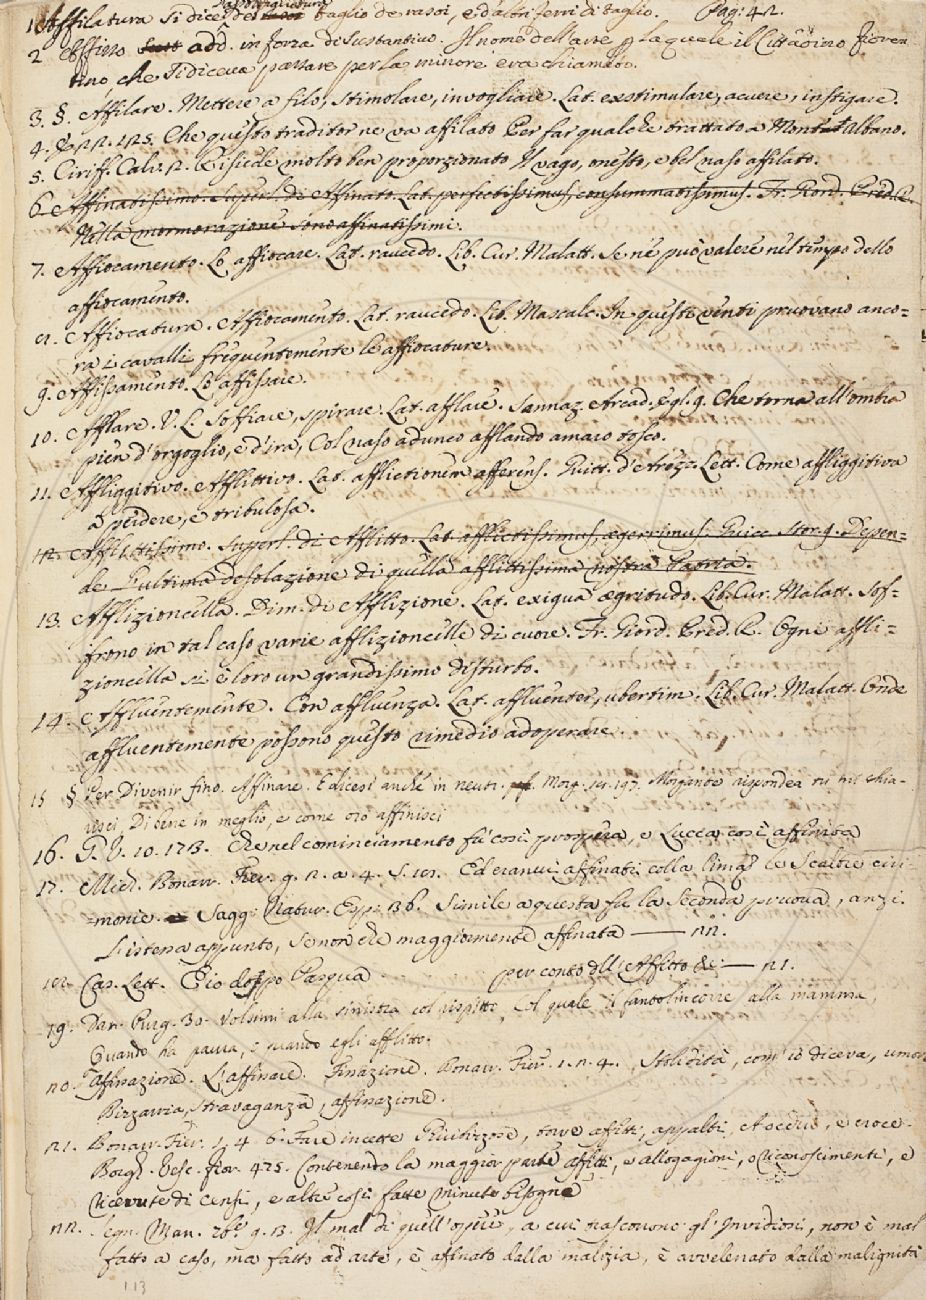 1. Affilatura Si dice del taglio de rasoi, e d'altri ferri di taglio. Pag: 42.
2 add. in forza di Sustantivo. Il nome dell'arte p la quale il Cittadino fioren
tino, che si diceva passare per la minore era chiamato.
3. §. Affilare. Mettere a filo, stimolare, invogliare. Lat. exstimulare, acuere, instigare.
4. 125. Che questo traditor ne va affilato Per far qualche trattato a Montalbano.
5. Ciriff. Calv. 2. molto ben proporzionato Il vago, onesto, e bel naso affilato.
6. Affinatissimo. Superl. di Affinato. Lat. perfectissimus, consummatissimus. Fr. Giord. Pred. R.
Nella mormorazione sono affinatissimi.
7. Affiocamento. Lo affiocare. Lat. raucedo. Lib. Cur. Malatt. Se ne può valere nel tempo dello
affiocamento.
8. Affiocatura. Affiocamento. Lat. raucedo. Lib. Mascalc. In questi venti pruovano anco=
ra i cavalli frequentemente le affiocature.
9. Affissamento. Lo affissare.
10. Afflare. V. L. Soffiare, spirare. Lat. afflare. Sannaz. Arcad. Egl. 9. Che torna all'ombra
pien d'orgoglio, e d'ira, Col naso adunco afflando amaro tosco.
11. Affliggitivo. Afflittivo. Lat. afflictionem afferens. Guitt. d'Arezz. Lett. Come affliggitiva
a perdere, e tribulosa.
12. Afflittissimo. Superl. di Afflitto. Lat. afflictissimus, aegerrimus. Guicc. Stor. 9. Depen=
de l'ultima desolazione di quella afflittissima nostra Patria.
13. Afflizioncella. Dim. di Afflizione. Lat. exigua aegritudo. Lib. Cur. Malatt. Sof=
frono in tal caso varie afflizioncelle di cuore. Fr. Giord. Pred. R. Ogni affli=
zioncella si è loro un grandissimo disturbo.
14. Affluentemente. Con affluenza. Lat. affluenter, ubertim. Lib. Cur. Malatt. Onde
affluentemente possono questo rimedio adoperare.
15 § Per Divenir fino. Affinare. E dicesi anche in neutr. Morg. 18. 197. Morgante rispondea tu mi chia-
risci, Di bene in meglio, e come oro affinisci
16. G. V. 10. 173. Che nel cominciamento fu così prospera, e Lucca così affinita
17. Mich. Bonarr. Fier. g. 2. a. 4. S. 18. Ed eranvi affinati colla le Scaltre ciri
=monie. Sagg: Natur. Esp: 136. Simile a questa fu la seconda pruova, anzi
l'istessa appunto, se non che maggiormente affinata —— 22.
18. Car. Lett. E io doppo Pasqua per conto dll'Affitto &c: —— 21.
19. Dan. Purg. 30. Volsimi alla sinistra col rispitto, Col quale il fantolin corre alla mamma,
Quando ha paura, o quando egli è afflitto.
20. Affinazione. L'affinare. Finazione. Bonar. Fier. 1. 2. 4. Stolidità, com'io diceva, umor
Bizzarria, stravaganza, affinazione.
21. Bonarr. Fier. 1. 4. 6. Fare incette torre affitti, appalti,
Borgh. Vesc. Fior. 475. Contenendo la maggior parte affitti, e allogagioni, o riconoscimenti, e
ricevute di censi, e altre così fatte minute bisogne
22. Segn. Man. 9. 13. Il mal di quell'opere, a cui trascorrono gl'Invidiosi, non è mal
fatto a caso, ma fatto ad arte, è affinato dalla malizia, è avvelenato dalla malignità
113